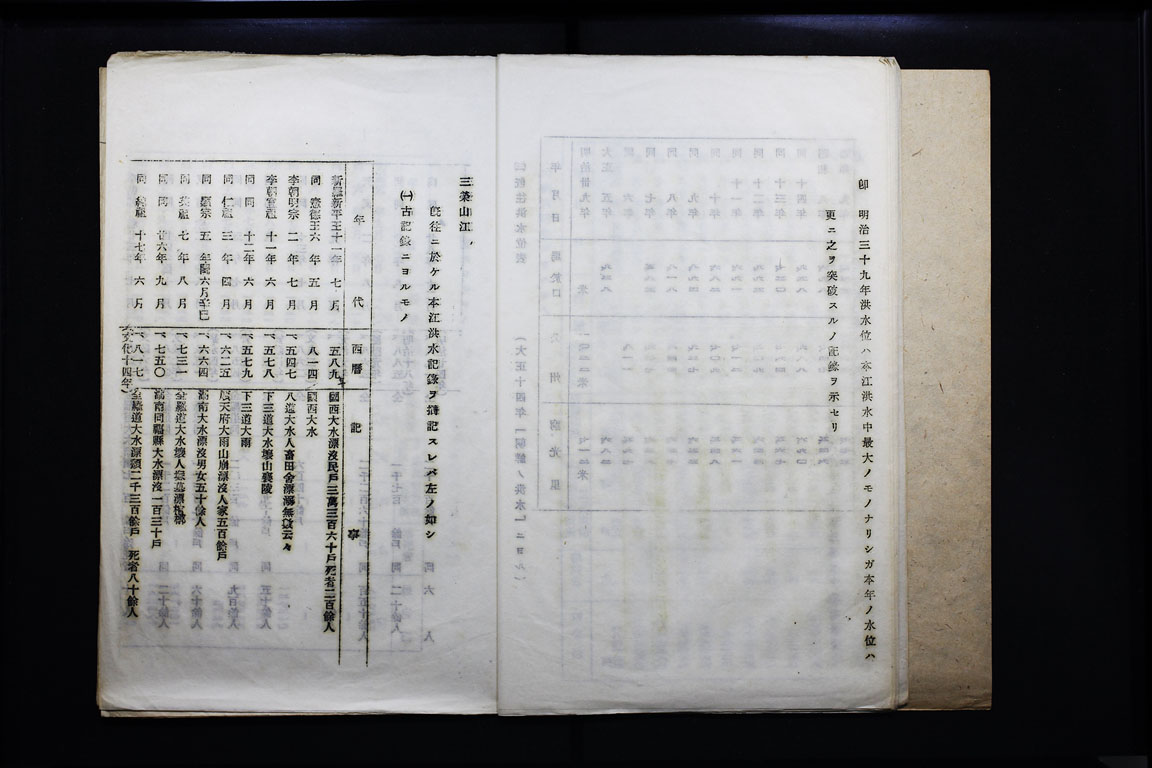 即 明治三十九年洪水位ハ本江洪水中最大ノモノナリシガ本年ノ水位ハ
更ニ之ヲ突破スルノ記録ヲ示セリ
三榮山江
既往ニ於ケル本江洪水記錄ヲ摘記スレバ左ノ如シ
㈠古記錄ニヨルモノ
年代 西曆 記事
新羅新平王十一年 七月 五八九 國西大水漂沒民戶三萬三百六十戶死者二百餘人
同 憲德王六年 五月 八一四 國西大水
李朝明宗 二年 七月 一、五四七 八道大水人畜田舍漂溺無數云々
李朝宣祖 十一年 六月 一、五七八 下三道大水壞山襄陵
同 同 十二年 六月 一、五七九 下三道大雨
同 仁祖 三年 四月 一、六二五 天府大雨山崩漂沒人家五百餘戶
同 顯宗 五年閏六月辛巳 一、六六四 湖南大水漂沒男女五十餘人
同 英祖 七年 八月 一、七三一 全羅道大水壞人塚墓漂棺槨
同 同 廿六年 九月 一、七五〇 湖南同福縣大水漂沒一百三十戶
同 純祖 十七年 六月 一、八一七 (文化十四年) 全羅道大水漂頹二千三百餘戶 死者八十餘人